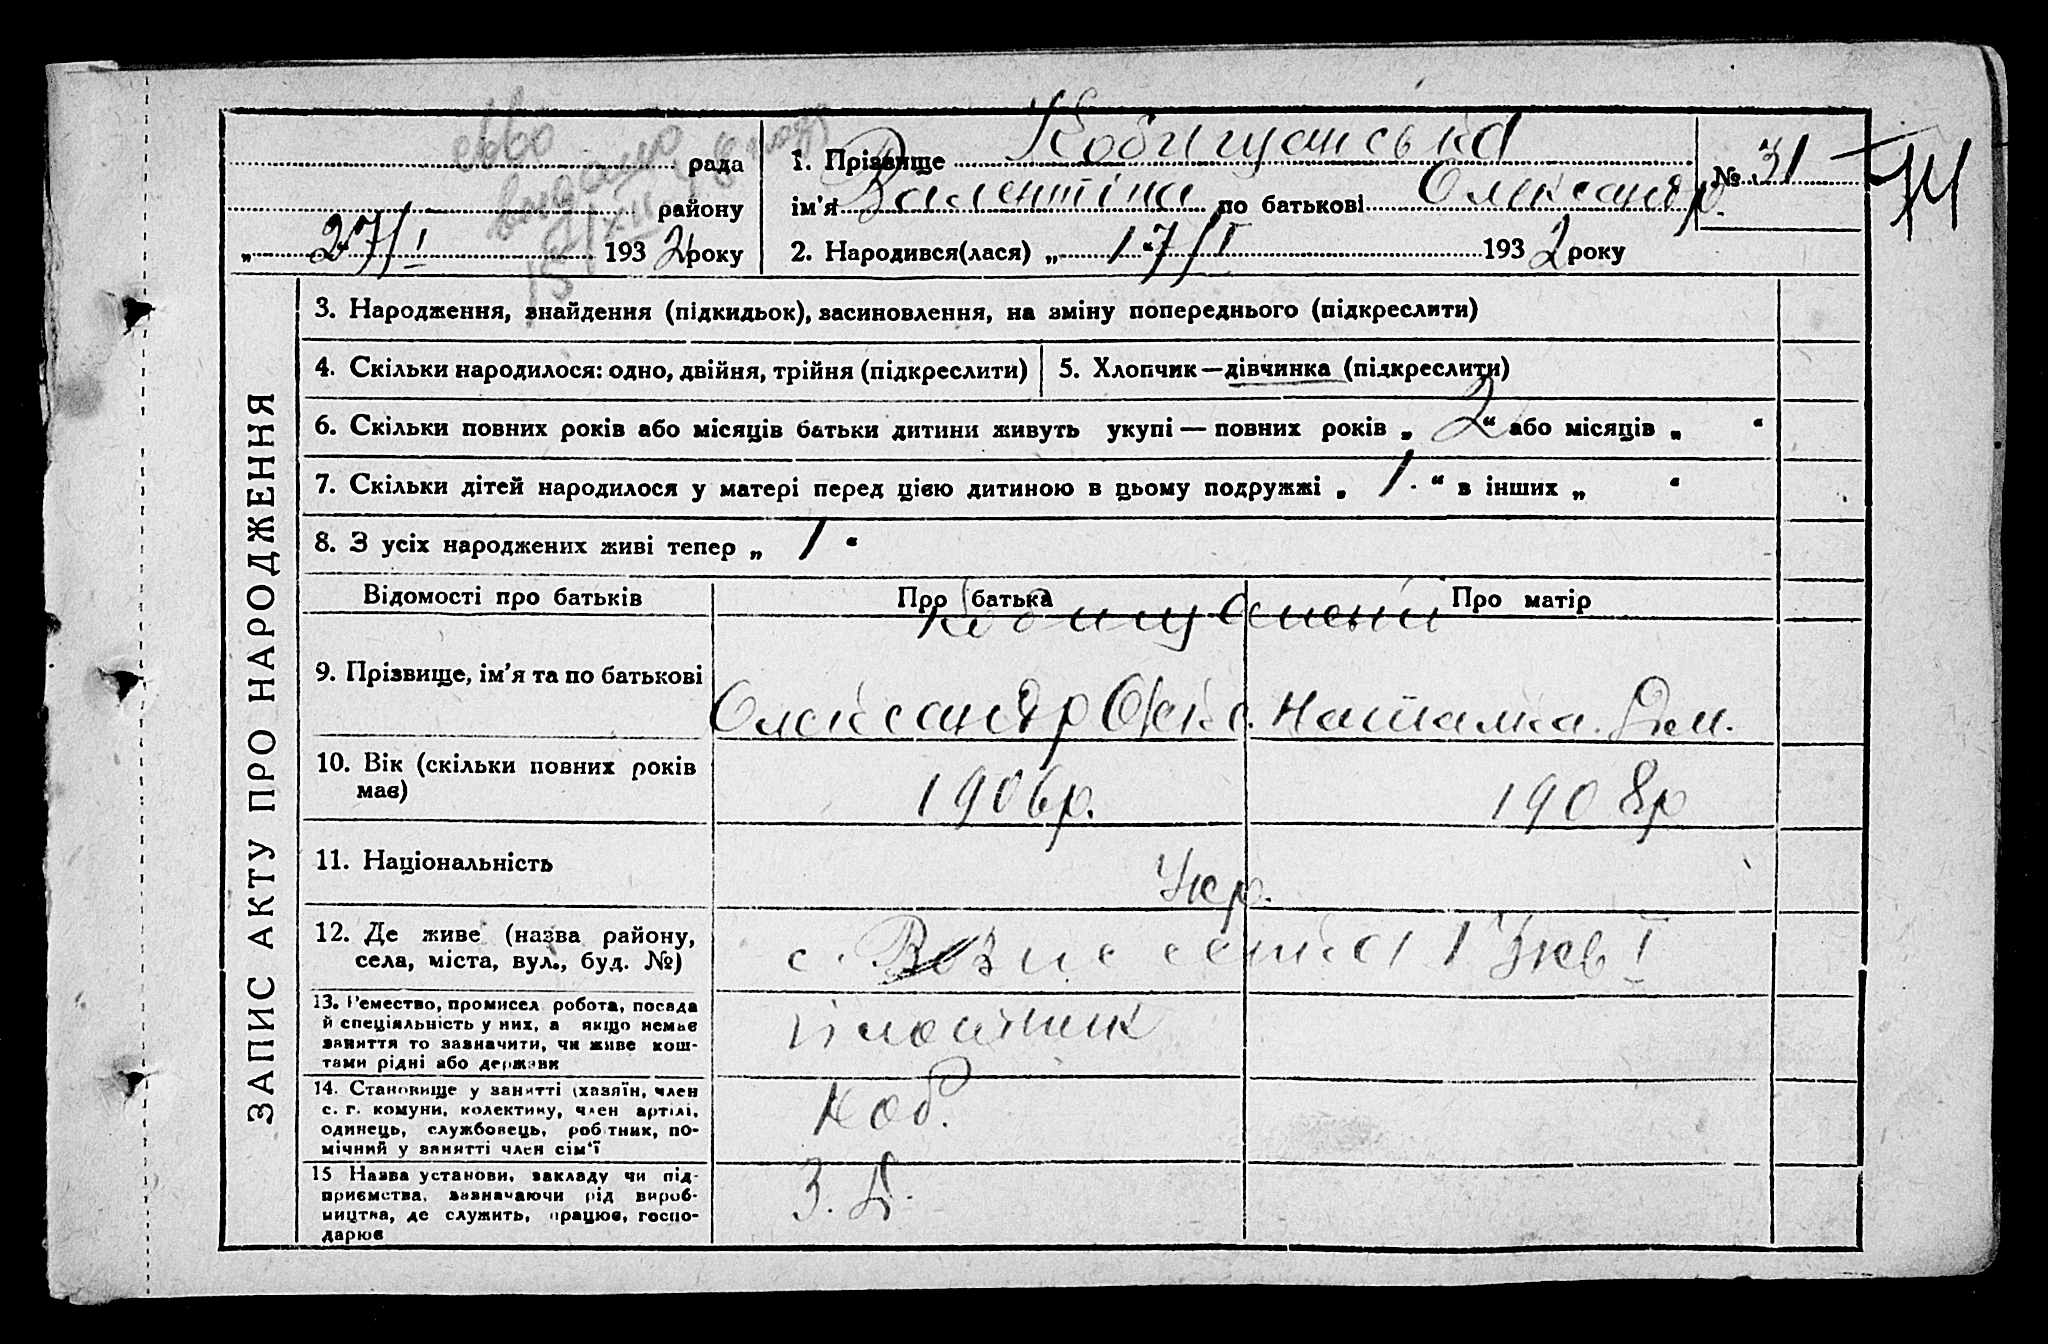 рада
району
„ 27/I 1932 року
1. Прізвище Кобищанська
ім'я Валентіна по батькові Олександр.
2. Народився(лася) „17/I 1932 року
№ 31
ЗАПИС АКТУ ПРО НАРОДЖЕННЯ
3. Народження, знайдення (підкидьок), засиновлення, на зміну попереднього (підкреслити)
4. Скільки народилося: одно, двійня, трійня (підкреслити)
5. Хлопчик — дівчинка (підкреслити)
6. Скільки повних років або місяців батьки дитини живуть укупі — повних років „ 2 “ або місяців „ “
7. Скільки дітей народилося у матері перед цією дитиною в цьому подружжі „ 1. “ в інших „ “
8. З усіх народжених живі тепер „ 1 “
Відомості про батьків
Про батька
Про матір
9. Прізвище, ім'я та по батькові
Олександр
Наталка. Дем.
10. Вік (скільки повних років
має)
1906р.
1908р
11. Національність
Укр.
12. Де живе (назва району,
села, міста, вул., буд. №)
с. Вознесенка
13. Ремество, промисел робота, посада
й спеціяльність у них, а якщо немає
заняття то зазначити, чи живе кош-
тами рідні або держави
плотник
14. Становище у занятті (хазяїн, член
с. г. комуни, колективу, член артілі,
одинець, службовець, робітник, по-
мічний у занятті член сім'ї
роб.
15 Назва установи, закладу чи під-
приємства, зазначаючи рід вироб-
ництва, де служить, працює, госпо-
дарює
З. Д.